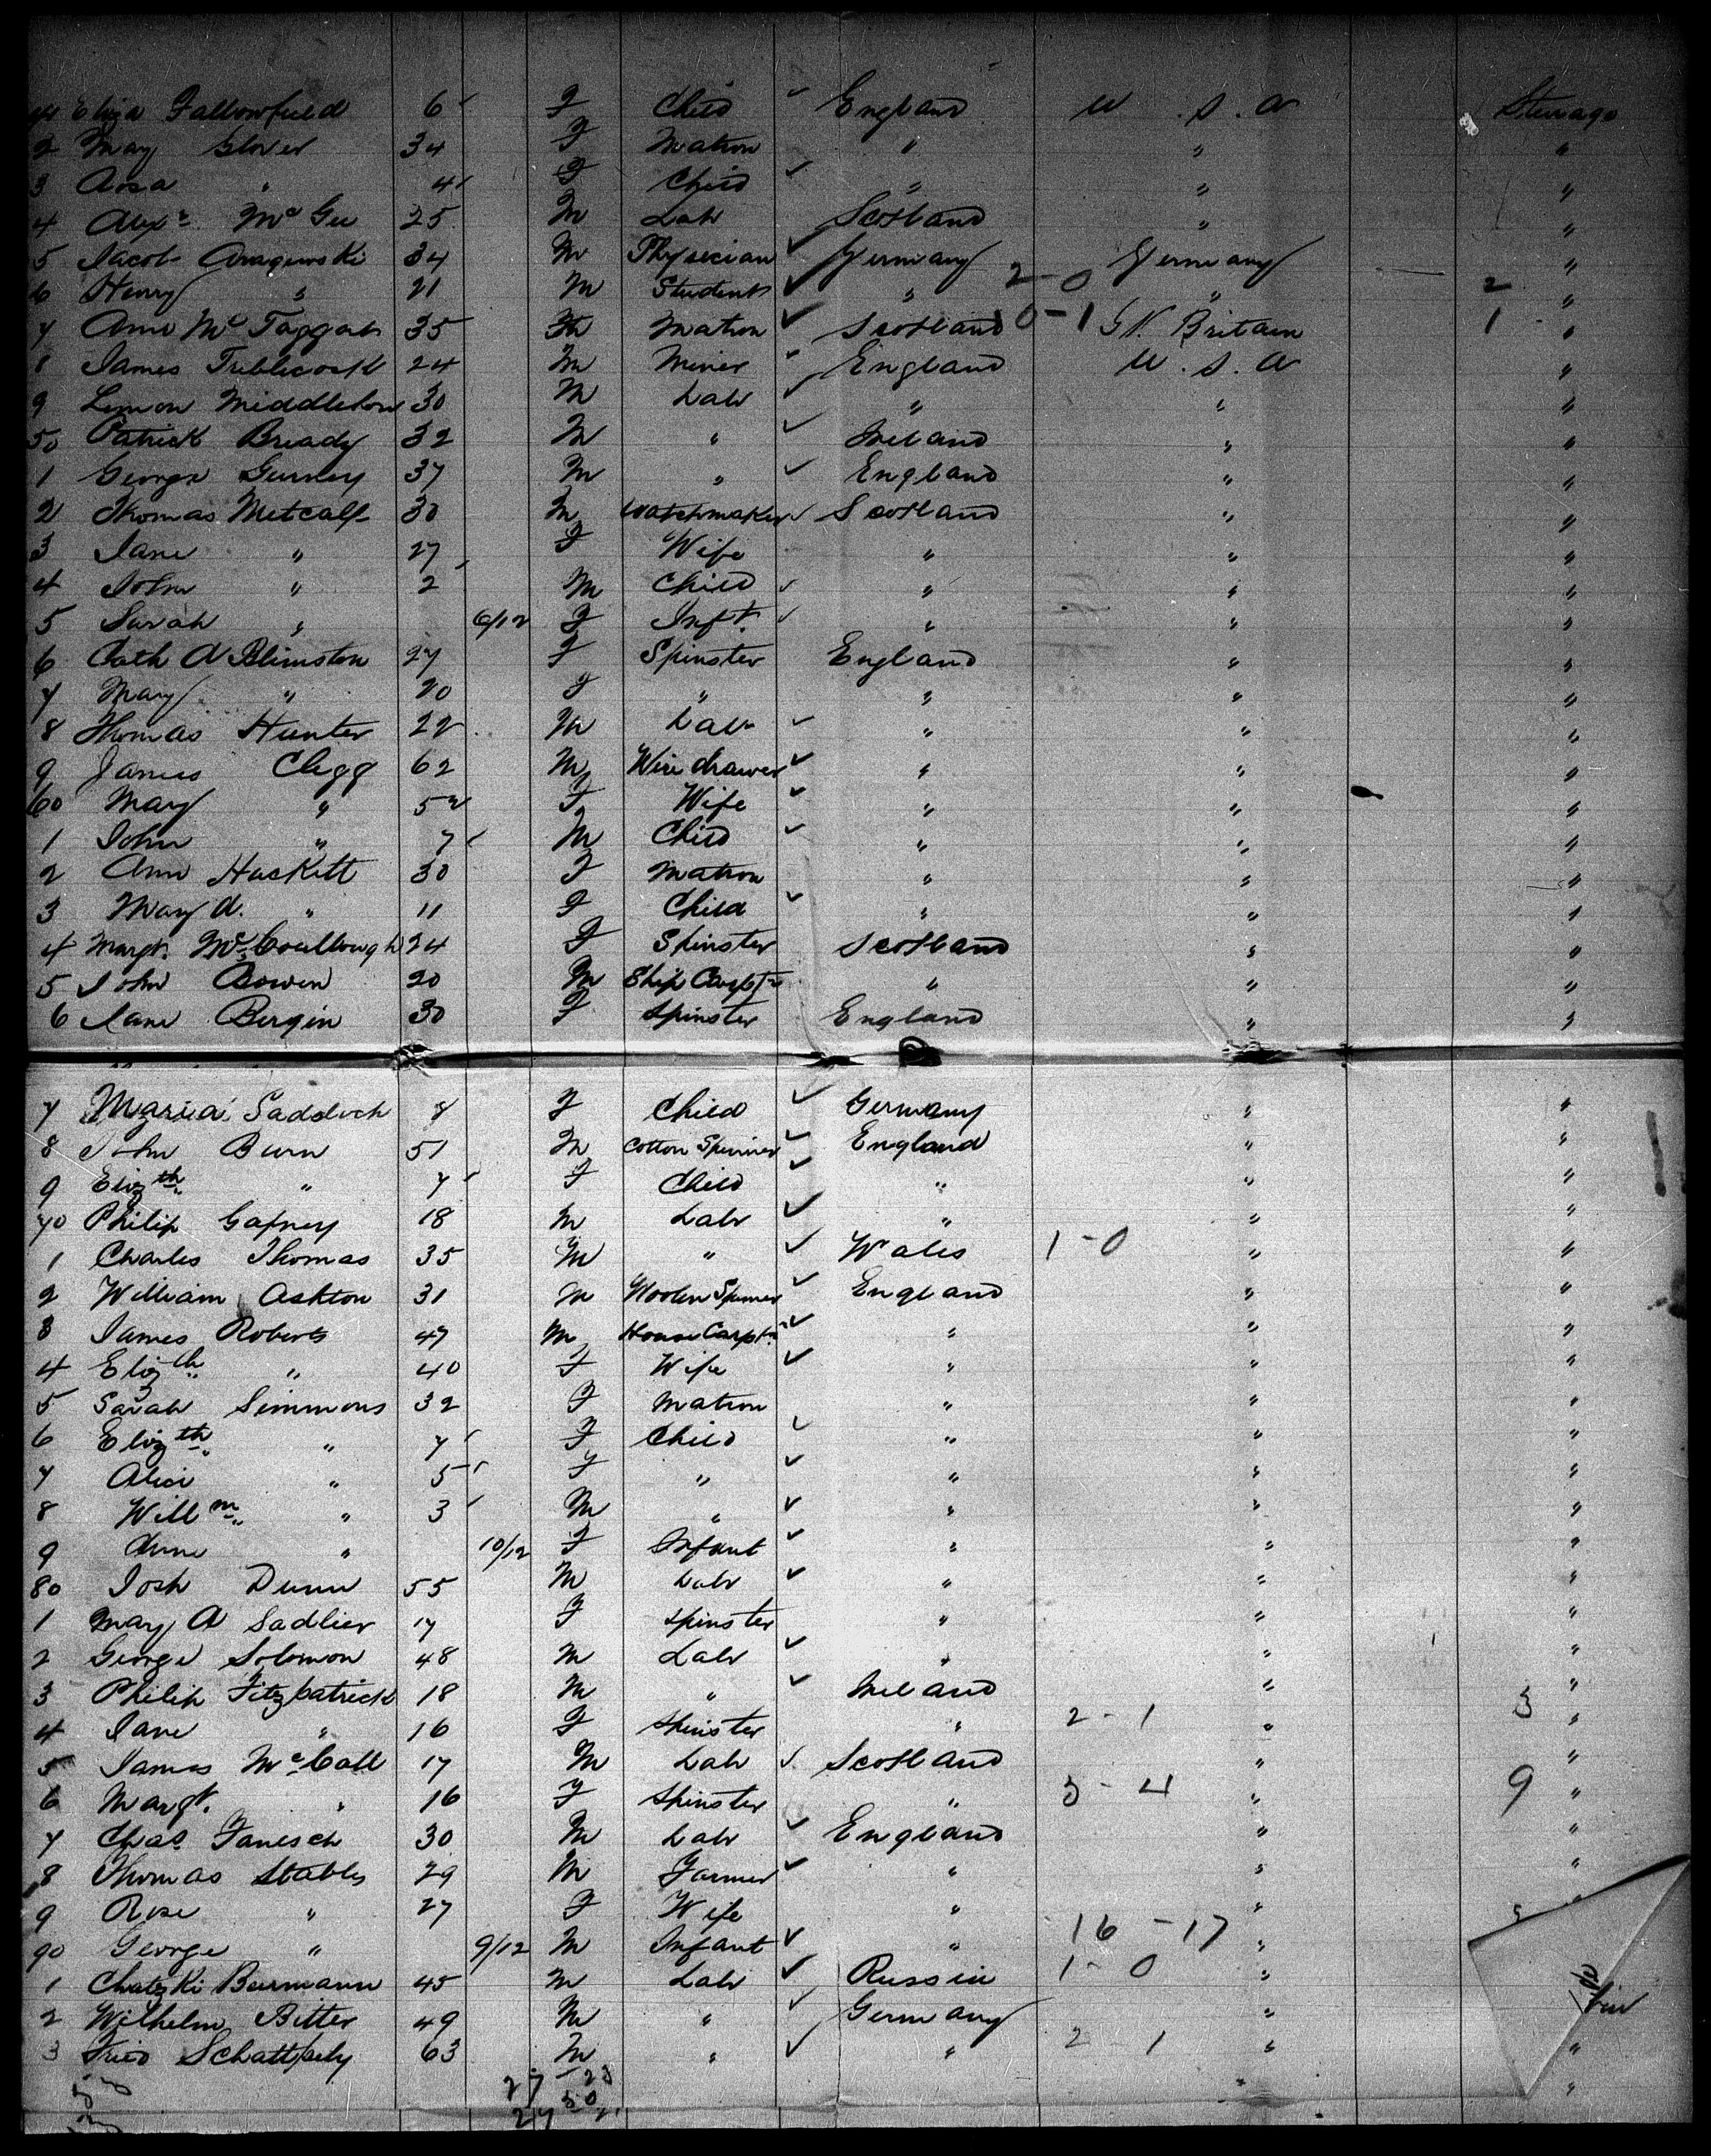 Eliza Fallowfield 6 F Child England U.S.A Steerage
2 Mary Glover 34 F Matron " " "
3 Rosa " 4 F Child " " "
4 Alexr. McGee 25 M Labr Scotland " "
5 Jacob 34 M Physician Germany Germany "
6 Henry " 21 M Student " 2-0 " 2 "
7 Ann McTaggart 35 F Matron Scotland 0-1 Gt. Britain 1 "
8 James Treblecock 24 M Miner England U.S.A "
9 Middleton 30 M Labr " " "
50 Patrick Bready 32 M " Ireland " "
1 George Gurney 37 M " England " "
2 Thomas Metcalf 30 M Watchmaker Scotland " "
3 Jane " 27 F Wife " " "
4 John " 2 M Child " " "
5 Sarah " 6/12 F Inft. " " "
6 Cath A Blimston 27 F Spinster England " "
7 Mary " 20 F " " " "
8 Thomas Hunter 22 M Labr " " "
9 James Clegg 62 M Wire drawer " " "
60 Mary " 52 F Wife " " "
1 John " 7 M Child " " "
2 Ann Hackett 30 F Matron " " "
3 Mary A. " 11 F Child " " "
4 Margt. McCoullough 24 F Spinster Scotland " "
5 John Bowen 20 M Ship Carptr " " "
6 Jane Bergin 30 F Spinster England " "
7 Maria 8 F Child Germany " "
8 John Burn 51 M Cotton Spinner England " "
9 Elizth. " 7 F Child " " "
70 Philip Gafney 18 M Labr " " "
1 Charles Thomas 35 M " Wales 1-0 " "
2 William Ashton 31 M Woolen Spinner England " "
3 James Roberts 47 M House Carptr " " "
4 Elizth. " 40 F Wife " " "
5 Sarah Simmons 32 F Matron " " "
6 Elizth. " 7 F Child " " "
7 Alice " 5 F " " " "
8 Willm. " 3 M " " " "
9 Anne " 10/12 F Infant " " "
80 Josh Dunn 55 M Labr " " "
1 Mary A Sadlier 17 F Spinster " " "
2 George Solomon 48 M Labr " " "
3 Philip Fitzpatrick 18 M " Ireland " "
4 Jane " 16 F Spinster " 2-1 " 3 "
5 James McCall 17 M Labr Scotland " "
6 Margt. " 16 F Spinster " 5-4 " 9 "
7 Chas. Janesch 30 M Labr England " "
8 Thomas Stables 29 M Farmer " " "
9 Rose " 27 F Wife " " "
90 George " 9/12 M Infant " 16-17 "
1 Chatzki Burmann 45 M Labr Russia 1-0 "
2 Wilhelm Bitter 49 M " Germany "
3 Fried 63 M " " 2-1 " "
27 23
50
27